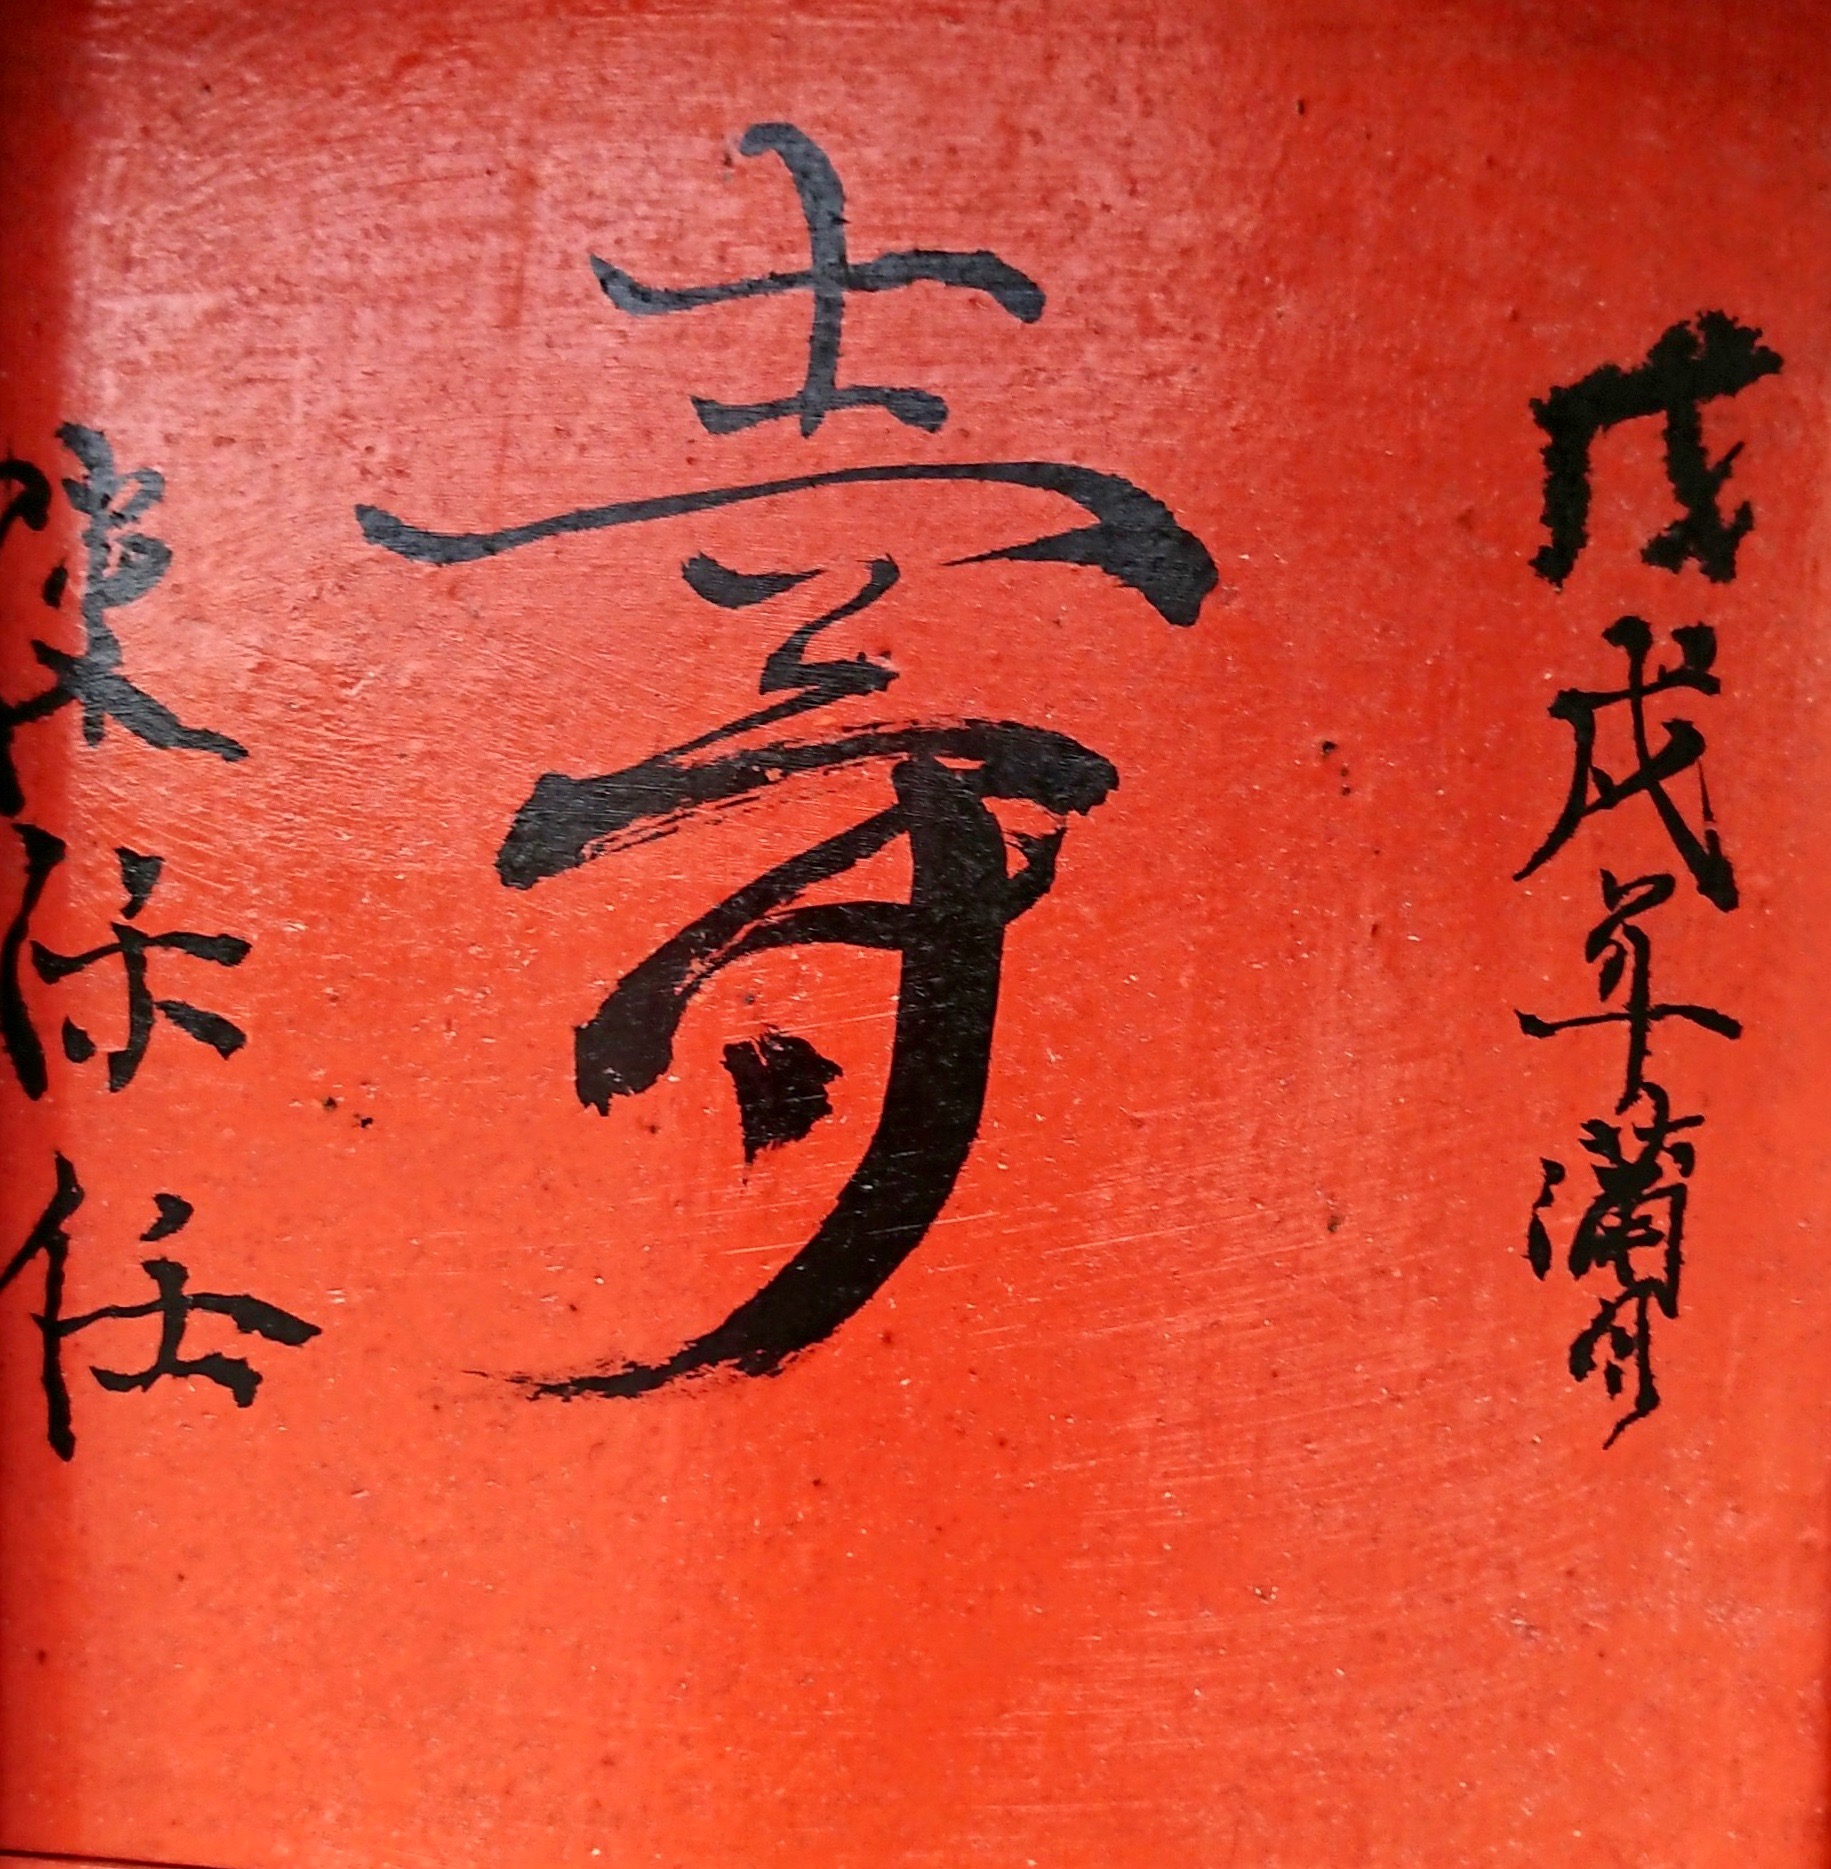 戊戌年蒲月
壽
陳保任